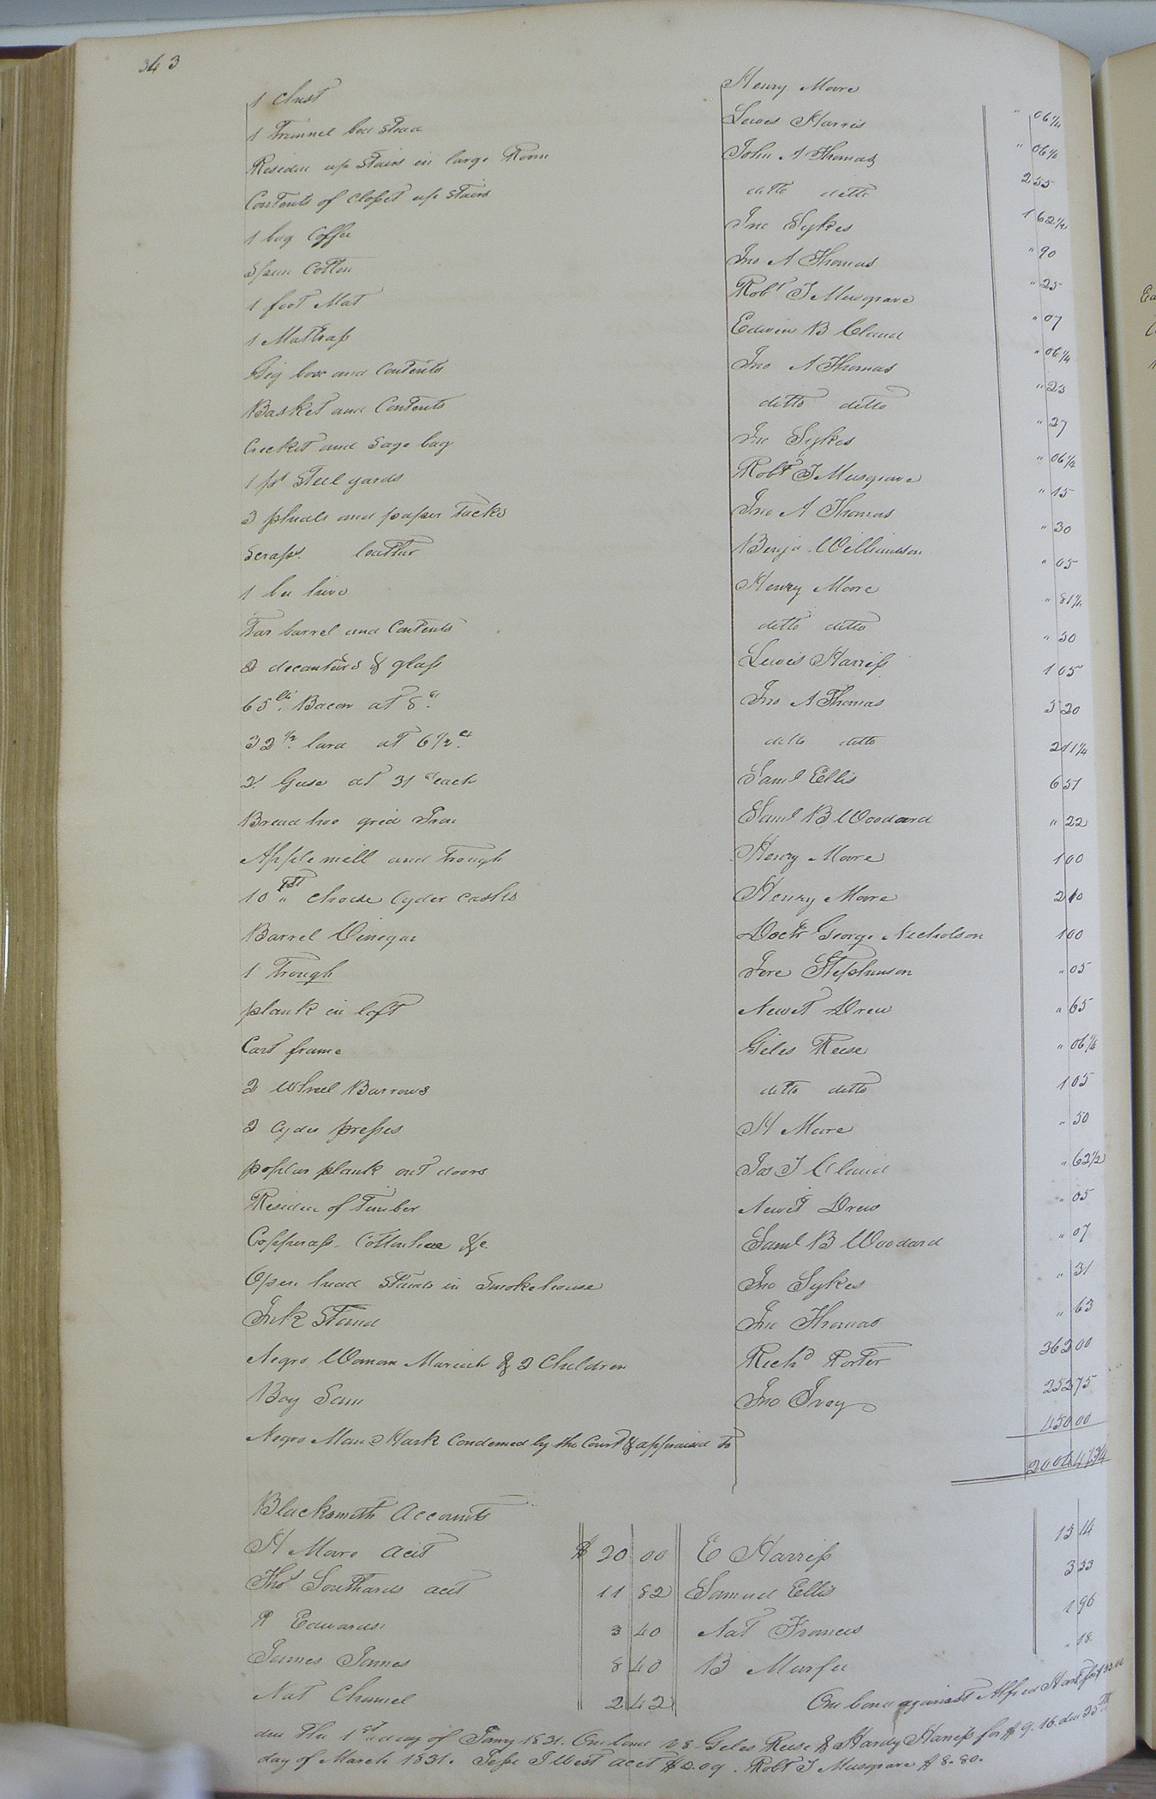 343
1 Chest Henry Moore " 06¼
1 Trunnel bed Stead Lewis Harris " 06¼
Residue up Stairs in large Room John A Thomas 2 55
Contents of Closet up Stairs ditto ditto 1 62½
1 bag Coffee Jno Sykes " 90
Spun Cotton Jno A Thomas " 25
1 foot Mat Robt J Musgrave " 07
1 Mattrass Edwin B Claud " 06¼
Big box and Contents Jno A Thomas " 25
Basket and Contents ditto ditto " 27
Crocket and Sage bag Jno Sykes " 06¼
1 pr Steel yards Robt J Musgrave " 15
3 and paper Tacks Jno A Thomas " 30
Scraps leather Benja Williamson " 05
1 bee hive Henry Moore " 81¼
Tar barrel and Contents ditto ditto " 50
2 decanters & glass Lewis Harriss 1 05
65 lbs Bacon at 8 cts Jno A Thomas 5 20
32½ lard at 6½ cts ditto ditto 2 11¼
21 Geese at 31 cts each Saml Ellis 6 51
Bread hoe grid Iron Saml B Woodard " 22
Apple mill and Trough Henry Moore 1 00
10 choice Cyder casks Henry Moore 2 10
Barrel Vinegar Doctr George Nicholson 1 00
1 Trough Jere Stephenson " 05
plank in loft Newit Drew " 65
Cart frame Giles Reese " 06¼
2 Wheel Barrows ditto ditto 1 05
2 Cyder presses H Moore " 50
poplar plank out doors Jos J Claud " 62½
Residue of Timber Newit Drew " 05
Copperass Cotton &c Saml B Woodard " 07
Open head Stands in Smoke house Jno Sykes " 31
Ink Stand Jno Thomas " 63
Negro Woman Mariah & 2 Children Richd Porter 362 00
Boy Sam Jno Ivey 252 75
Negro Man Hark Condemned by the Court & appraised to 450 00
Blacksmith Accounts
H Moore acct $ 20 00 E Harriss 15 14
Thos Southards acct 11 82 Samuel Ellis 3 33
R Edwards 3 40 Nat Francis 1 96
James James 8 40 B Murfee " 18
Nat Channel 2 42 One bond against Alfred
due the 1st day of Jany 1831. One bond vs Giles Reese & Hardy Harriss for $ 9.16 due 25th
day of March 1831. Jesse J West acct Robt J Musgrave $ 8.80.